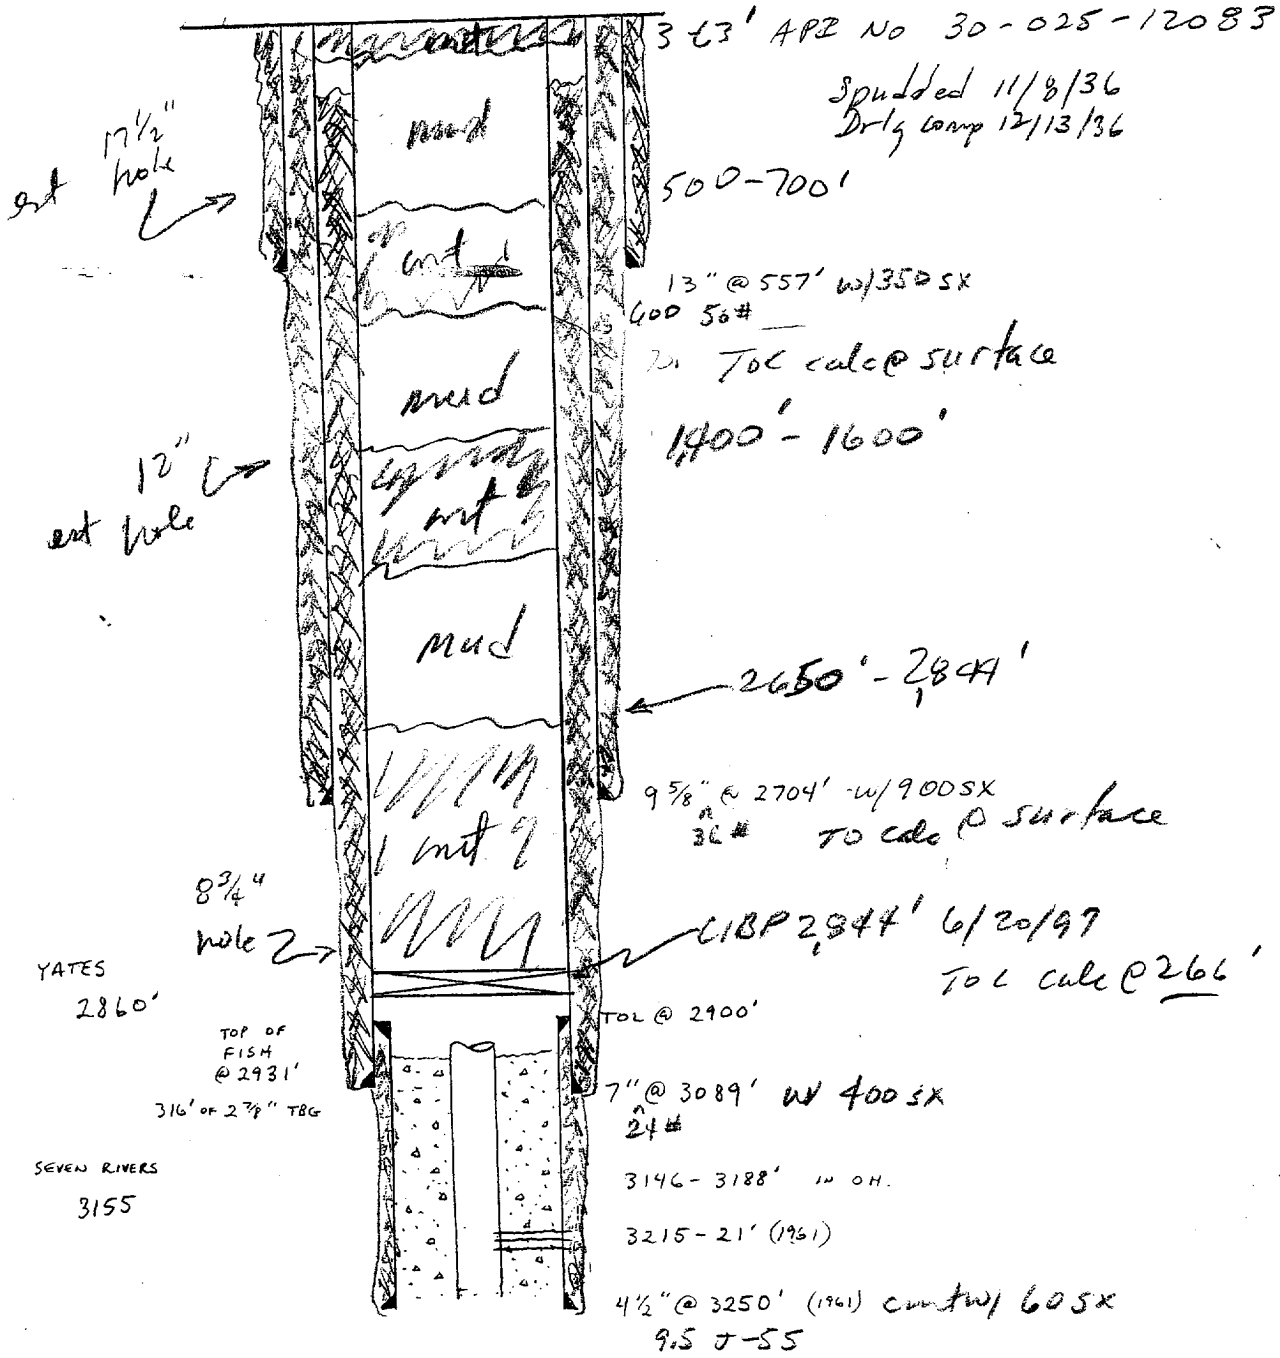 API No 30-025-12083
cmt
Spudded 11/8/36
Drlg comp 12/13/36
mud
17 1/2"
est hole
500-700'
cmt
13" @ 557' w/350 sx
50#
TOC calc @ surface
mud
1,400' - 1600'
12"
est hole
cmt
mud
2650' - 2,844'
9 5/8" @ 2704' w/ 900 SX
36#
TO calc @ surface
cmt
8 3/4"
hole
CIBP 2,844' 6/20/97
TOC calc @ 266'
YATES
2860'
TOL @ 2900'
TOP OF
FISH
@ 2931'
316' OF 2 7/8" TBG
7" @ 3089' w/ 400 sx
24#
SEVEN RIVERS
3155
3146-3188' IN OH.
3215-21' (1961)
4 1/2" @ 3250' (1961) cmt w/ 60 SX
9.5 J-55